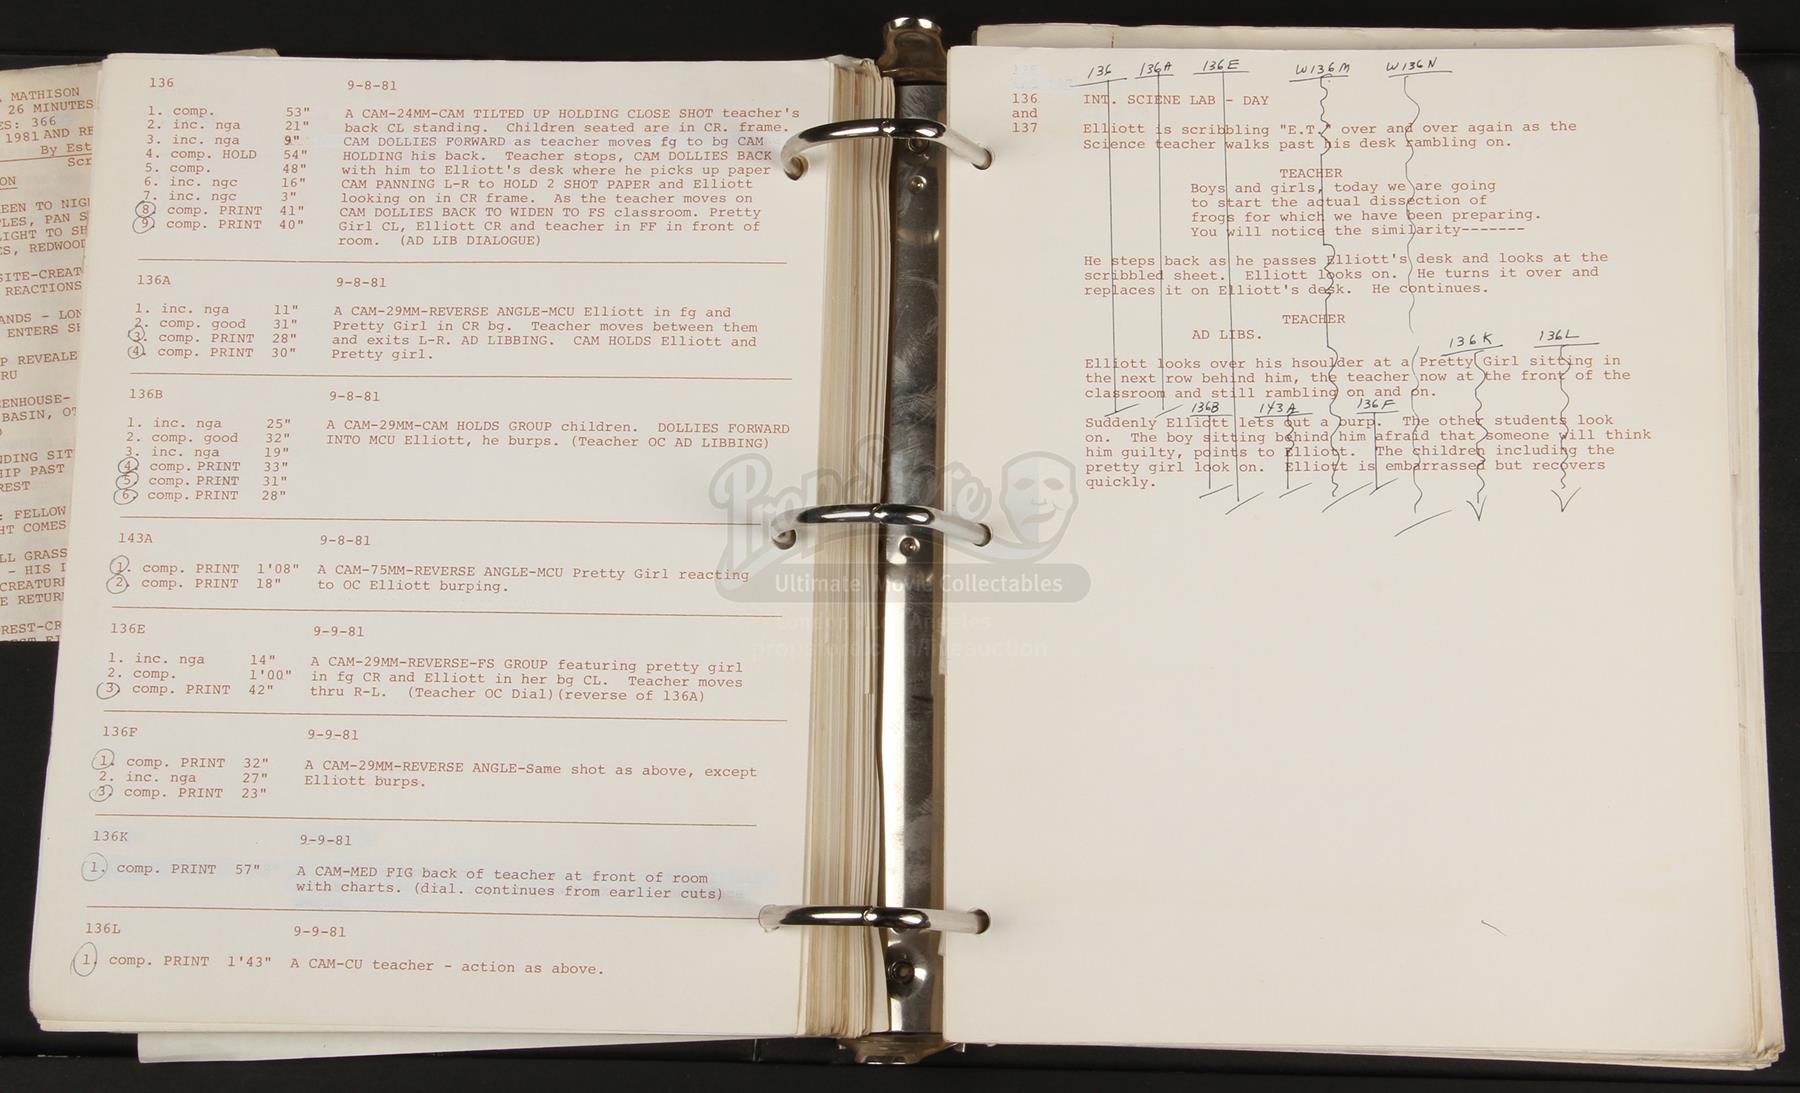 . MATHISON
26 MINUTES
ES: 366
1981 AND RE
By Est
Scr
ON
EEN TO NIGH
PLES, PAN S
LIGHT TO SH
ES, REDWOOD
SITE-CREAT
REACTIONS
ANDS - LON
ENTERS SH
P REVEALE
RU
EENHOUSE-
BASIN, OT
NDING SIT
HIP PAST
REST
: FELLOW
HT COMES
LL GRASS
- HIS I
CREATURE
E RETURN
REST-CR
136 9-8-81
1. comp. 53" A CAM-24MM-CAM TILTED UP HOLDING CLOSE SHOT teacher's
2. inc. nga 21" back CL standing. Children seated are in CR. frame.
3. inc. nga 9" CAM DOLLIES FORWARD as teacher moves fg to bg CAM
4. comp. HOLD 54" HOLDING his back. Teacher stops, CAM DOLLIES BACK
5. comp. 48" with him to Elliott's desk where he picks up paper
6. inc. ngc 16" CAM PANNING L-R to HOLD 2 SHOT PAPER and Elliott
7. inc. ngc 3" looking on in CR frame. As the teacher moves on
8. comp. PRINT 41" CAM DOLLIES BACK TO WIDEN TO FS classroom. Pretty
9. comp. PRINT 40" Girl CL, Elliott CR and teacher in FF in front of
room. (AD LIB DIALOGUE)
136A 9-8-81
1. inc. nga 11" A CAM-29MM-REVERSE ANGLE-MCU Elliott in fg and
2. comp. good 31" Pretty Girl in CR bg. Teacher moves between them
3. comp. PRINT 28" and exits L-R. AD LIBBING. CAM HOLDS Elliott and
4. comp. PRINT 30" Pretty girl.
136B 9-8-81
1. inc. nga 25" A CAM-29MM-CAM HOLDS GROUP children. DOLLIES FORWARD
2. comp. good 32" INTO MCU Elliott, he burps. (Teacher OC AD LIBBING)
3. inc. nga 19"
4. comp. PRINT 33"
5. comp. PRINT 31"
6. comp. PRINT 28"
143A 9-8-81
1. comp. PRINT 1'08" A CAM-75MM-REVERSE ANGLE-MCU Pretty Girl reacting
2. comp. PRINT 18" to OC Elliott burping.
136E 9-9-81
1. inc. nga 14" A CAM-29MM-REVERSE-FS GROUP featuring pretty girl
2. comp. 1'00" in fg CR and Elliott in her bg CL. Teacher moves
3. comp. PRINT 42" thru R-L. (Teacher OC Dial)(reverse of 136A)
136F 9-9-81
1. comp. PRINT 32" A CAM-29MM-REVERSE ANGLE-Same shot as above, except
2. inc. nga 27" Elliott burps.
3. comp. PRINT 23"
136K 9-9-81
1. comp. PRINT 57" A CAM-MED FIG back of teacher at front of room
with charts. (dial. continues from earlier cuts)
136L 9-9-81
1. comp. PRINT 1'43" A CAM-CU teacher - action as above.
136 136A 136E W136M W136N
136 INT. SCIENE LAB - DAY
and
137 Elliott is scribbling "E.T." over and over again as the
Science teacher walks past his desk rambling on.
TEACHER
Boys and girls, today we are going
to start the actual dissection of
frogs for which we have been preparing.
You will notice the similarity-------
He steps back as he passes Elliott's desk and looks at the
scribbled sheet. Elliott looks on. He turns it over and
replaces it on Elliott's desk. He continues.
TEACHER
AD LIBS.
136K 136L
Elliott looks over his hsoulder at a Pretty Girl sitting in
the next row behind him, the teacher now at the front of the
classroom and still rambling on and on.
136B 143A 136F
Suddenly Elliott lets out a burp. The other students look
on. The boy sitting behind him afraid that someone will think
him guilty, points to Elliott. The children including the
pretty girl look on. Elliott is embarrassed but recovers
quickly.
Prop Store
Ultimate Movie Collectables
London Los Angeles
propstore.com/liveauction